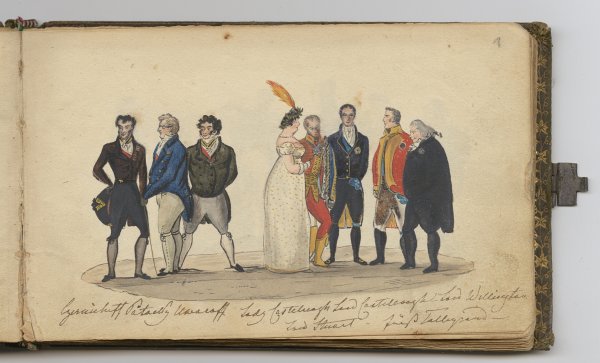 1
Czernicheff Potocky Uwaroff Lady Castlereagh Lord Castlereagh Lord Wellington
Lord Stuart - Fürst Talleyrand -